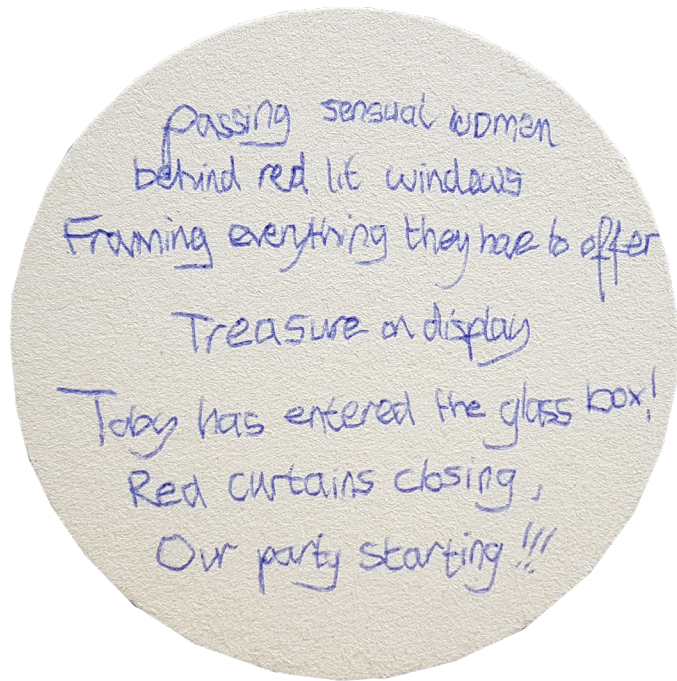 passing sensual women
behind red lit windows
Framing everything they have to offer
Treasure on display
Toby has entered the glass box!
Red curtains closing,
Our party starting!!!